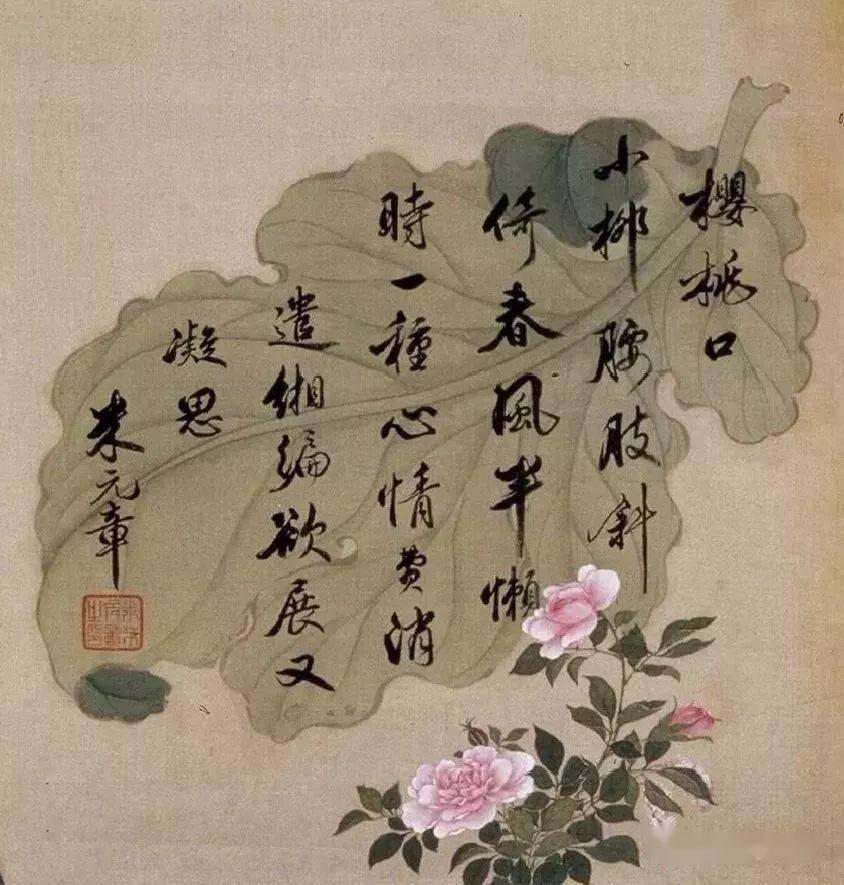 櫻桃口
小柳腰肢斜
倚春風半懶
時一種心情費消
遣緗編欲展又
凝思
米元章